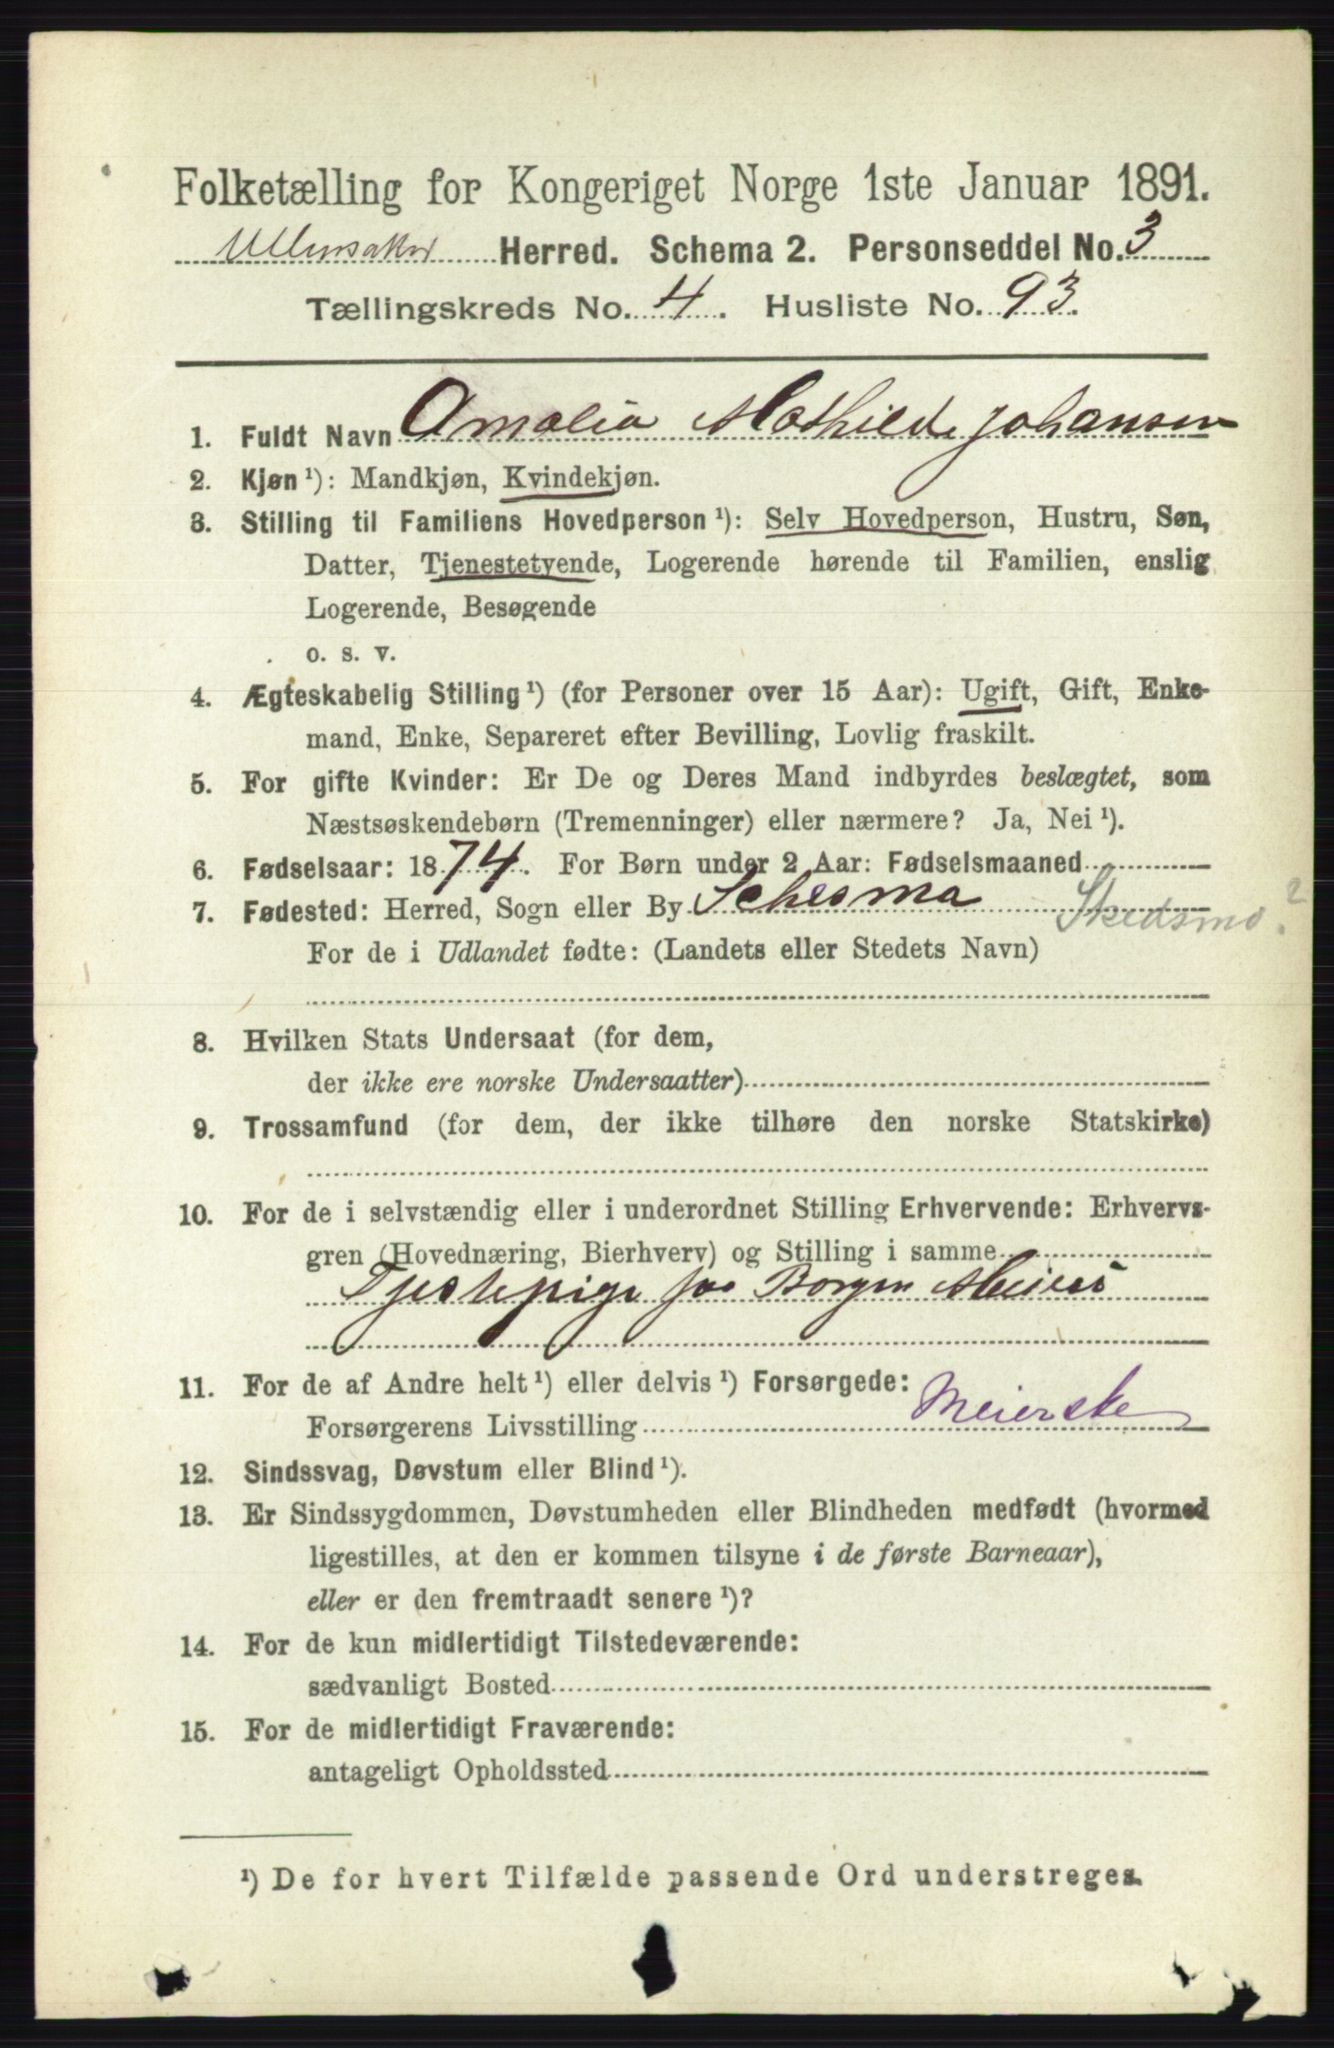 Folketælling for Kongeriget Norge 1ste Januar 1891.
Ullensaker Herred. Schema 2. Personseddel No. 3
Tællingskreds No. 4. Husliste No. 93.
1. Fuldt Navn Amalia Mathilde Johansen
2. Kjøn ¹): Mandkjøn, Kvindekjøn.
3. Stilling til Familiens Hovedperson ¹): Selv Hovedperson, Hustru, Søn,
Datter, Tjenestetyende, Logerende hørende til Familien, enslig
Logerende, Besøgende
o. s. v.
4. Ægteskabelig Stilling ¹) (for Personer over 15 Aar): Ugift, Gift, Enke-
mand, Enke, Separeret efter Bevilling, Lovlig fraskilt.
5. For gifte Kvinder: Er De og Deres Mand indbyrdes beslægtet, som
Næstsøskendebørn (Tremenninger) eller nærmere? Ja, Nei ¹).
6. Fødselsaar: 1874. For Børn under 2 Aar: Fødselsmaaned
7. Fødested: Herred, Sogn eller By Schesma Skedsmo.?
For de i Udlandet fødte: (Landets eller Stedets Navn)
8. Hvilken Stats Undersaat (for dem,
der ikke ere norske Undersaatter)
9. Trossamfund (for dem, der ikke tilhøre den norske Statskirke)
10. For de i selvstændig eller i underordnet Stilling Erhvervende: Erhvervs-
gren (Hovednæring, Bierhverv) og Stilling i samme
Tjestepige paa Borgen Meieri
11. For de af Andre helt ¹) eller delvis ¹) Forsørgede:
Forsørgerens Livsstilling Meierske
12. Sindssvag, Døvstum eller Blind ¹).
13. Er Sindssygdommen, Døvstumheden eller Blindheden medfødt (hvormed
ligestilles, at den er kommen tilsyne i de første Barneaar),
eller er den fremtraadt senere ¹)?
14. For de kun midlertidigt Tilstedeværende:
sædvanligt Bosted
15. For de midlertidigt Fraværende:
antageligt Opholdssted
¹) De for hvert Tilfælde passende Ord understreges.